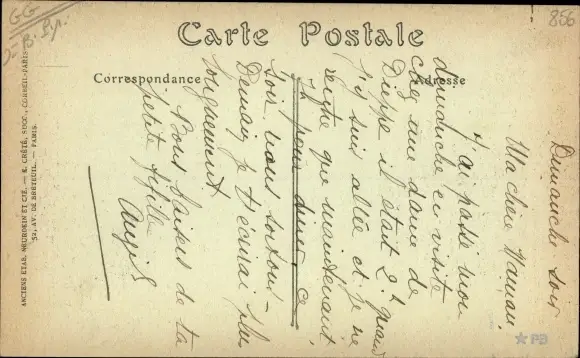 GG
856
Carte Postale
Correspondance
Adresse
ANCIENS ETAB. NEURDEIN ET CIE. — E. CRÉTÉ, SUCC., CORBEIL-PARIS
52, AV. DE BRETEUIL. — PARIS.
Dimanche soir
Ma chère Maman,
J'ai passé mon
dimanche en visite
chez une dame de
Dieppe il était 2h quand
j'y suis allée et je ne
rentre que maintenant
7h pour dîner, ce
soir nous sortons —
Demain je t'écrirai plus
longuement
Bons baisers de ta
petite fifille
PB